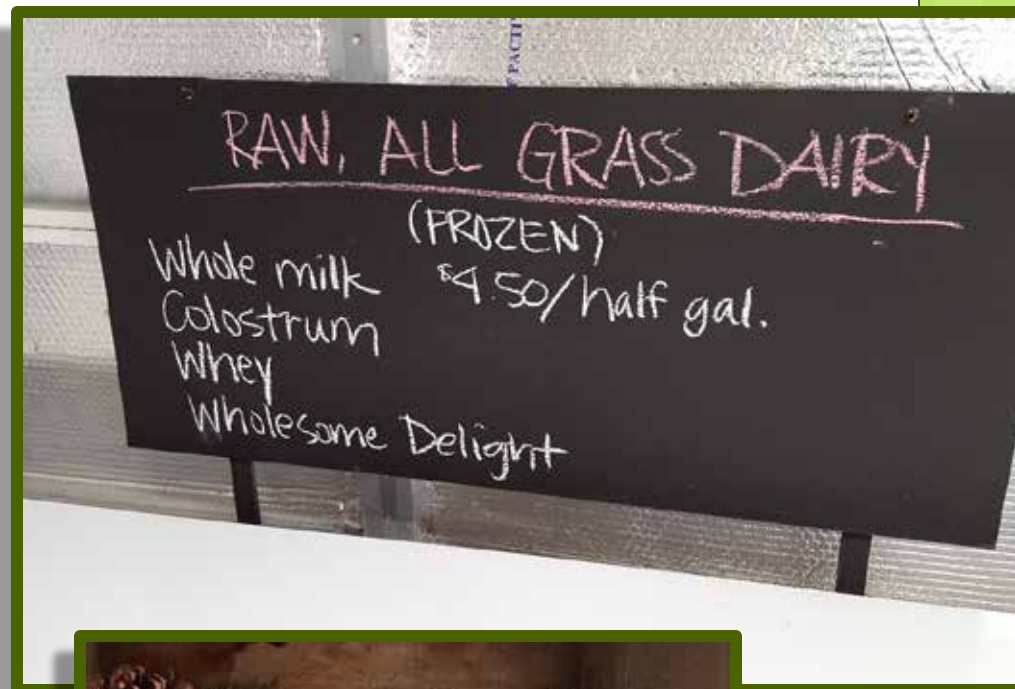 RAW, ALL GRASS DAIRY
(FROZEN)
Whole milk $4.50/half gal.
Colostrum
Whey
Wholesome Delight